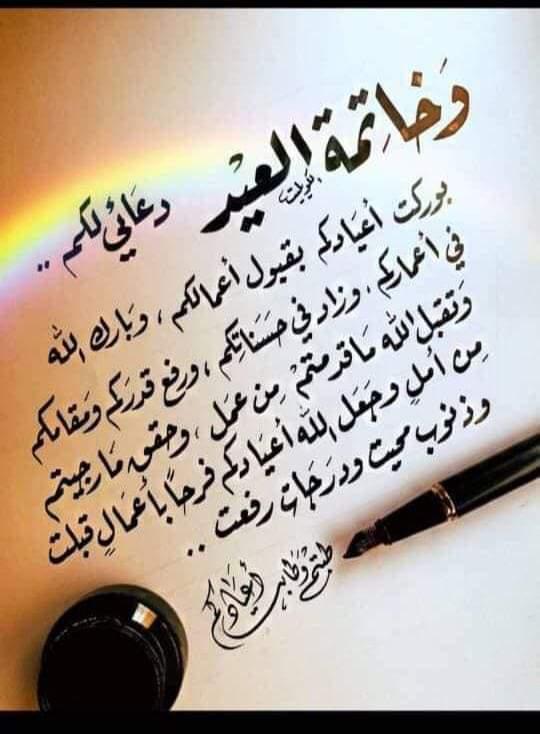 وَخاتِمة العيْد دعَائي لكم ..
بوركت أعيَادكم بقبول أعمالكم ، وَبارك الله
في أعماركم . وزاد في حسَنَاتِكم ، ورفع قدرَكم وَمقامكم
وَتقبل الله مَا قدمتمْ مِن عمَل ، وحقق مَا رجيتم
مِن أملٍ وجعَل الله أعيَادكم فرحاً بأعمَالٍ قبلت
وذنوب محيت ودرجَات رفعت ..
طبتم وَطابت أعيَادكم